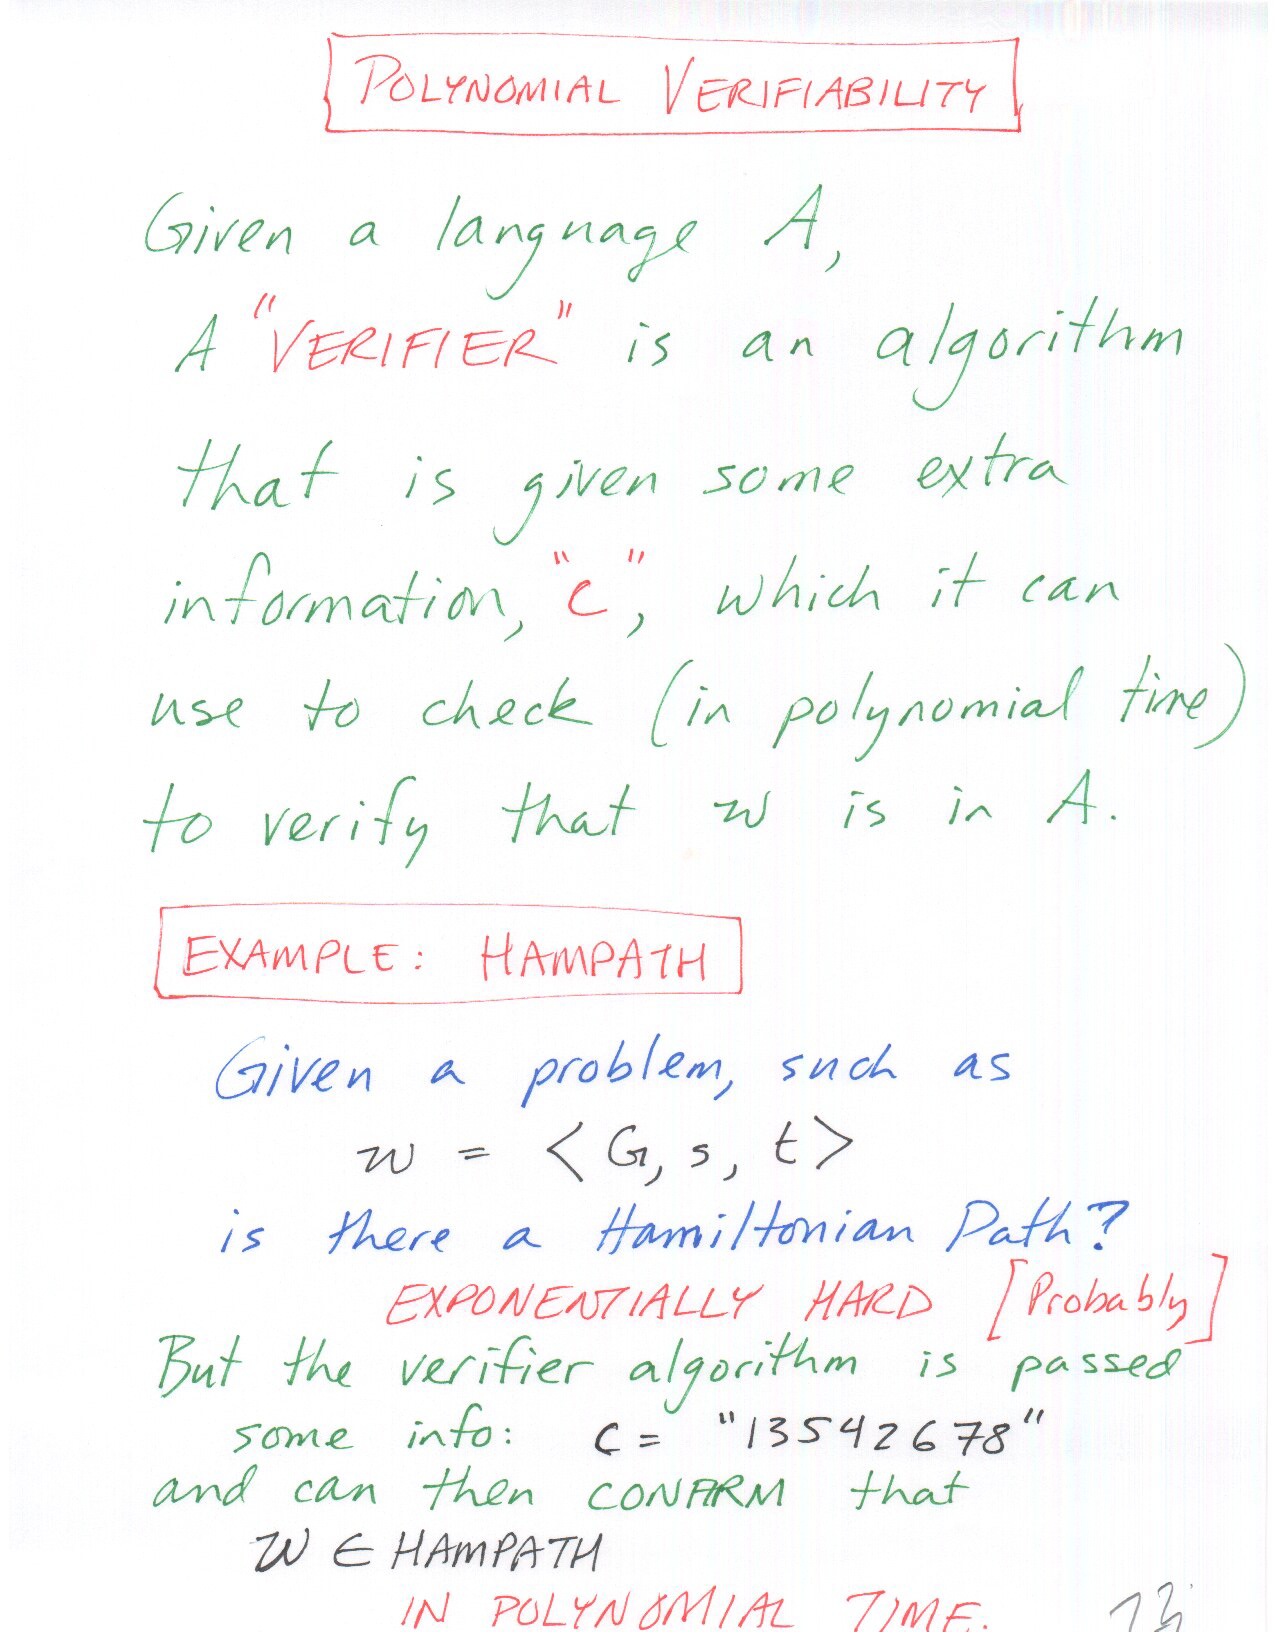 POLYNOMIAL VERIFIABILITY
Given a language A,
A "VERIFIER" is an algorithm
that is given some extra
information, "c", which it can
use to check (in polynomial time)
to verify that w is in A.
EXAMPLE: HAMPATH
Given a problem, such as
w = <G, s, t>
is there a Hamiltonian Path?
EXPONENTIALLY HARD [Probably]
But the verifier algorithm is passed
some info: c = "13542678"
and can then CONFIRM that
w ∈ HAMPATH
IN POLYNOMIAL TIME.